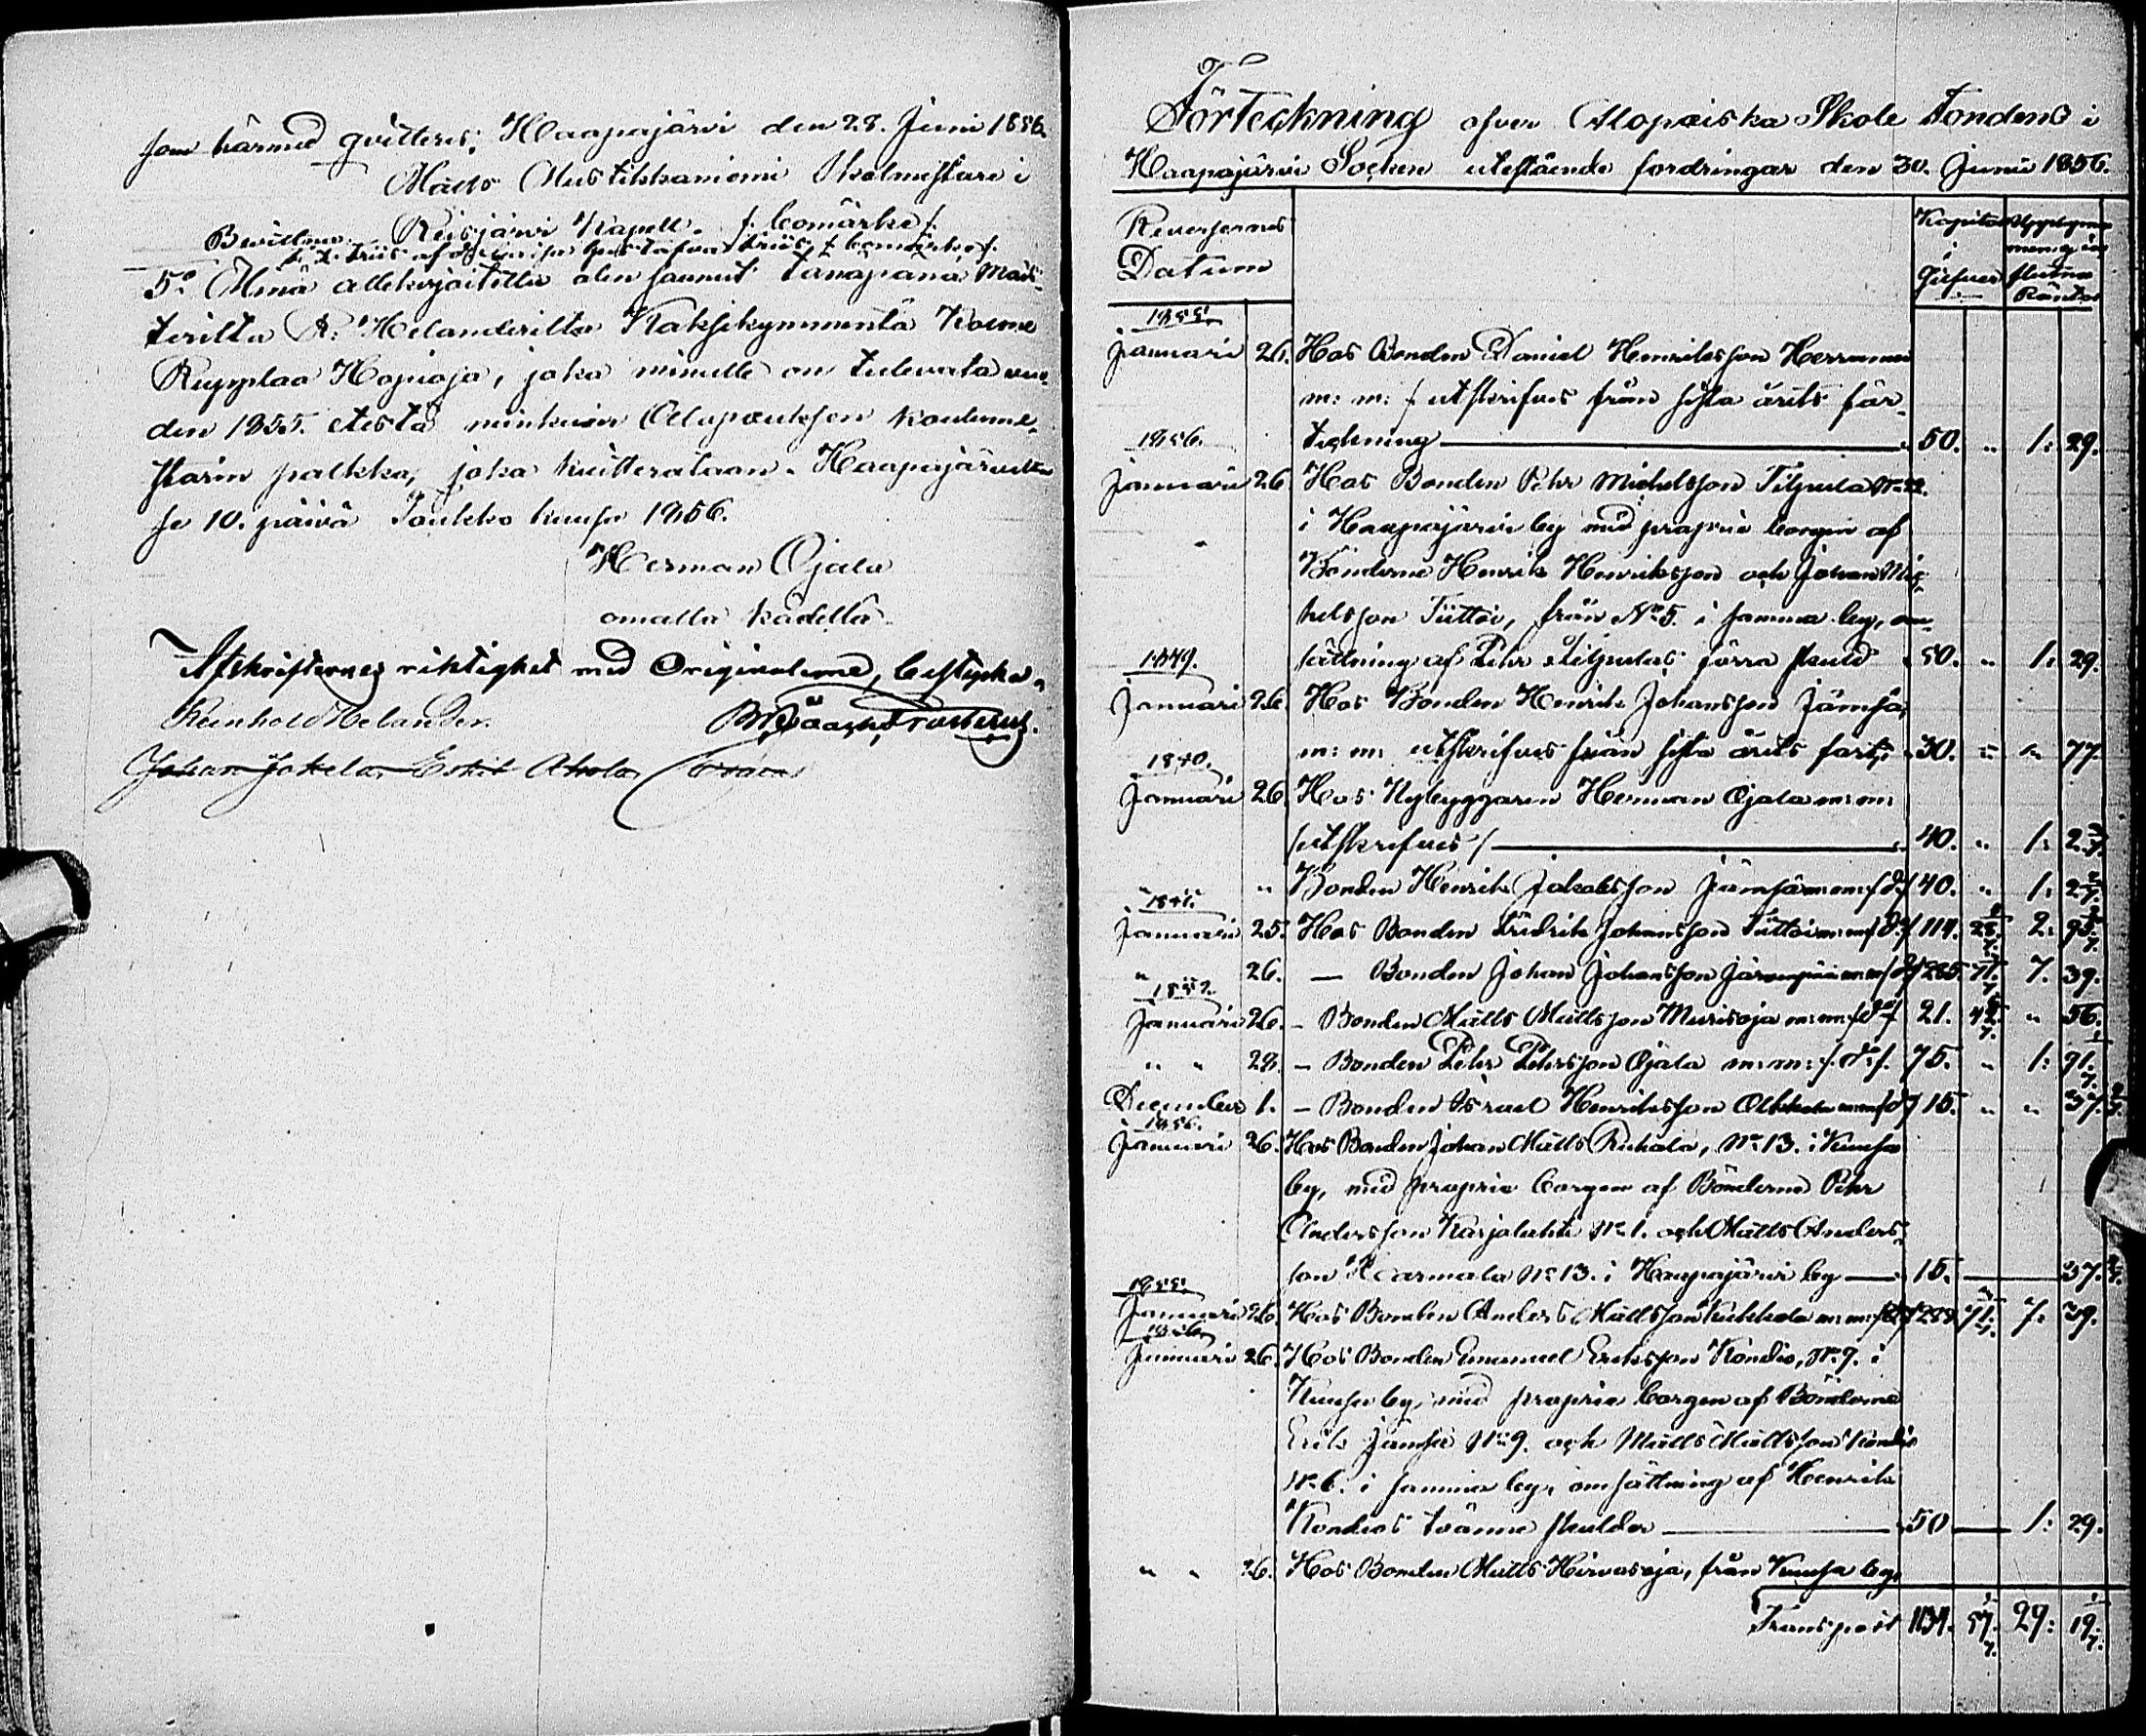 som härmed qvitteres; Haapajärvi den 28. Juni 1856.
Matts Mustikkaniemi Skolmästare i
Reisjärvi Kapell. /: bomärke :/
Bevittna:
5:o Minä allekirjoitettu olen saanut tänäpänä Mäs-
terilta R: Helanderilta Kaksikymmentä Kolme
Ruplaa Hopioja, joka minulle on tulevata vuo-
den 1855. etestä minkuin Alapauksen koulume-
starin palkka, joka kuitterataan. Haapajärvellä
se 10. päivä Toukko kuusa 1856.
Herman Ojala
omalla kädellä
Afskrifternes riktighet med Originalerne, bestyrka,
Reinhold Helander.
Johan Jokela, Eskil Ahola
Förteckning öfver Alopæiska Skole Fondens i
Haapajärvi Socken utestående fordringar den 30. Junii 1856.
Reversernes Datum
Kapital i Silfver
Räntor
1855.
Januari 26. Hos Bonden Daniel Henriksson Herranen
m: m: / utskrifves från sista årets för-
1856. teckning 50. " 1: 29.
Januari 26. Hos Bonden Pehr Michelsson Tilpula
i Haapajärvi by med proprie borgen af
Bönderne Henrik Henriksson och Johan Mic-
kelsson Tiittoi, från N:o 5. i samma by, om-
1849. sättning af Pehr Tilpulas förra skuld 50. " 1: 29.
Januari 26. Hos Bonden Henrik Johansson Jämsä,
m: m: utskrifves från sista årets fört: 30. " " 77.
1840.
Januari 26. Hos Nybyggaren Herman Ojala m: m:
/utskrifves/ 40. " 1: 2
" Bonden Henrik Jakobsson Jämsä m: m: /d:o/ 40. " 1: 2
Januari 25. Hos Bonden Fredrik Johansson Tiittoi m: m: /d:o/ 114. 28 2: 95
" 26. — Bonden Johan Johansson Järvenpää m: m: /d:o/ 285. 71. 7. 39.
Januari 26. - Bonden Matts Mattsson Murisoja m: m: /d:o/ 21. 42 " 56.
" " 28. - Bonden Pehr Pehrsson Ojala m: m: /: d:o :/ 75. " 1: 91.
December 1. - Bonden Israel Henriksson m: m: /d:o/ 15. " " 37.
1856.
Januari 26. Hos Bonden Johan Matts Ruhala, N:o 13. i Kuusa
by, med proprie borgen af Bönderne Pehr
Andersson Karjalahti N:o 1. och Matts Anders-
son Karmala N:o 13. i Haapajärvi by 15. 37.
1855.
Januari 26. Hos Bonden Anders Mattsson Kukkola m: m: /d:o/ 285 71. 7: 39.
1856.
Januari 26. Hos Bonden Emanuel Eriksson Kondio, N:o 9. i
Kuusa by, med proprie borgen af Bönderne
Erik Jämsä N:o 9. och Matts Mattsson Kondio
N:o 6. i samma by, omsättning af Henrik
Kondios tvänne skulder 50 1: 29.
" " 26. Hos Bonden Matts Hirvasoja, från Kuusa by,
Transport 1134. 57. 29: 19.